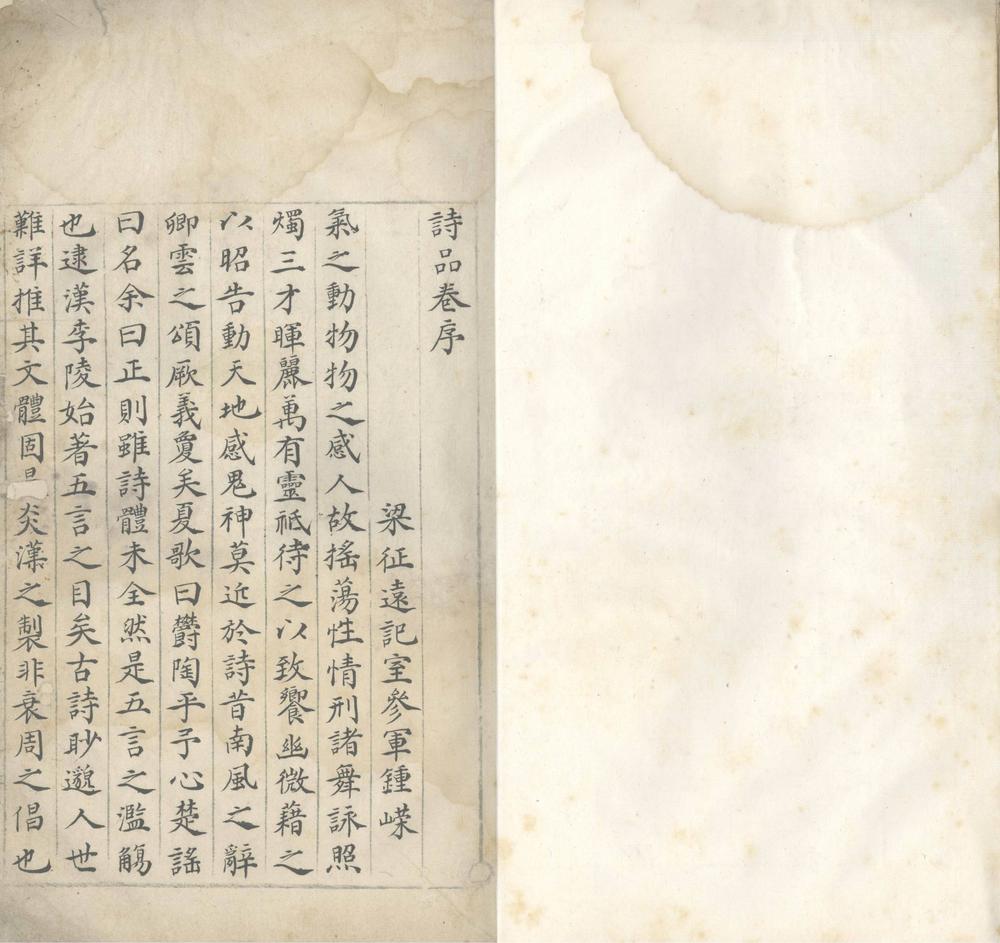 詩品卷序
梁征遠記室參軍鍾嶸
氣之動物物之感人故搖蕩性情刑諸舞詠照
燭三才暉麗萬有靈祇待之以致饗幽微藉之
以昭告動天地感鬼神莫近於詩昔南風之辭
卿雲之頌厥義敻矣夏歌曰欝陶乎予心楚謠
曰名余曰正則雖詩體未全然是五言之濫觴
也逮漢李陵始著五言之目矣古詩眇邈人世
難詳推其文體固炎漢之製非衰周之倡也